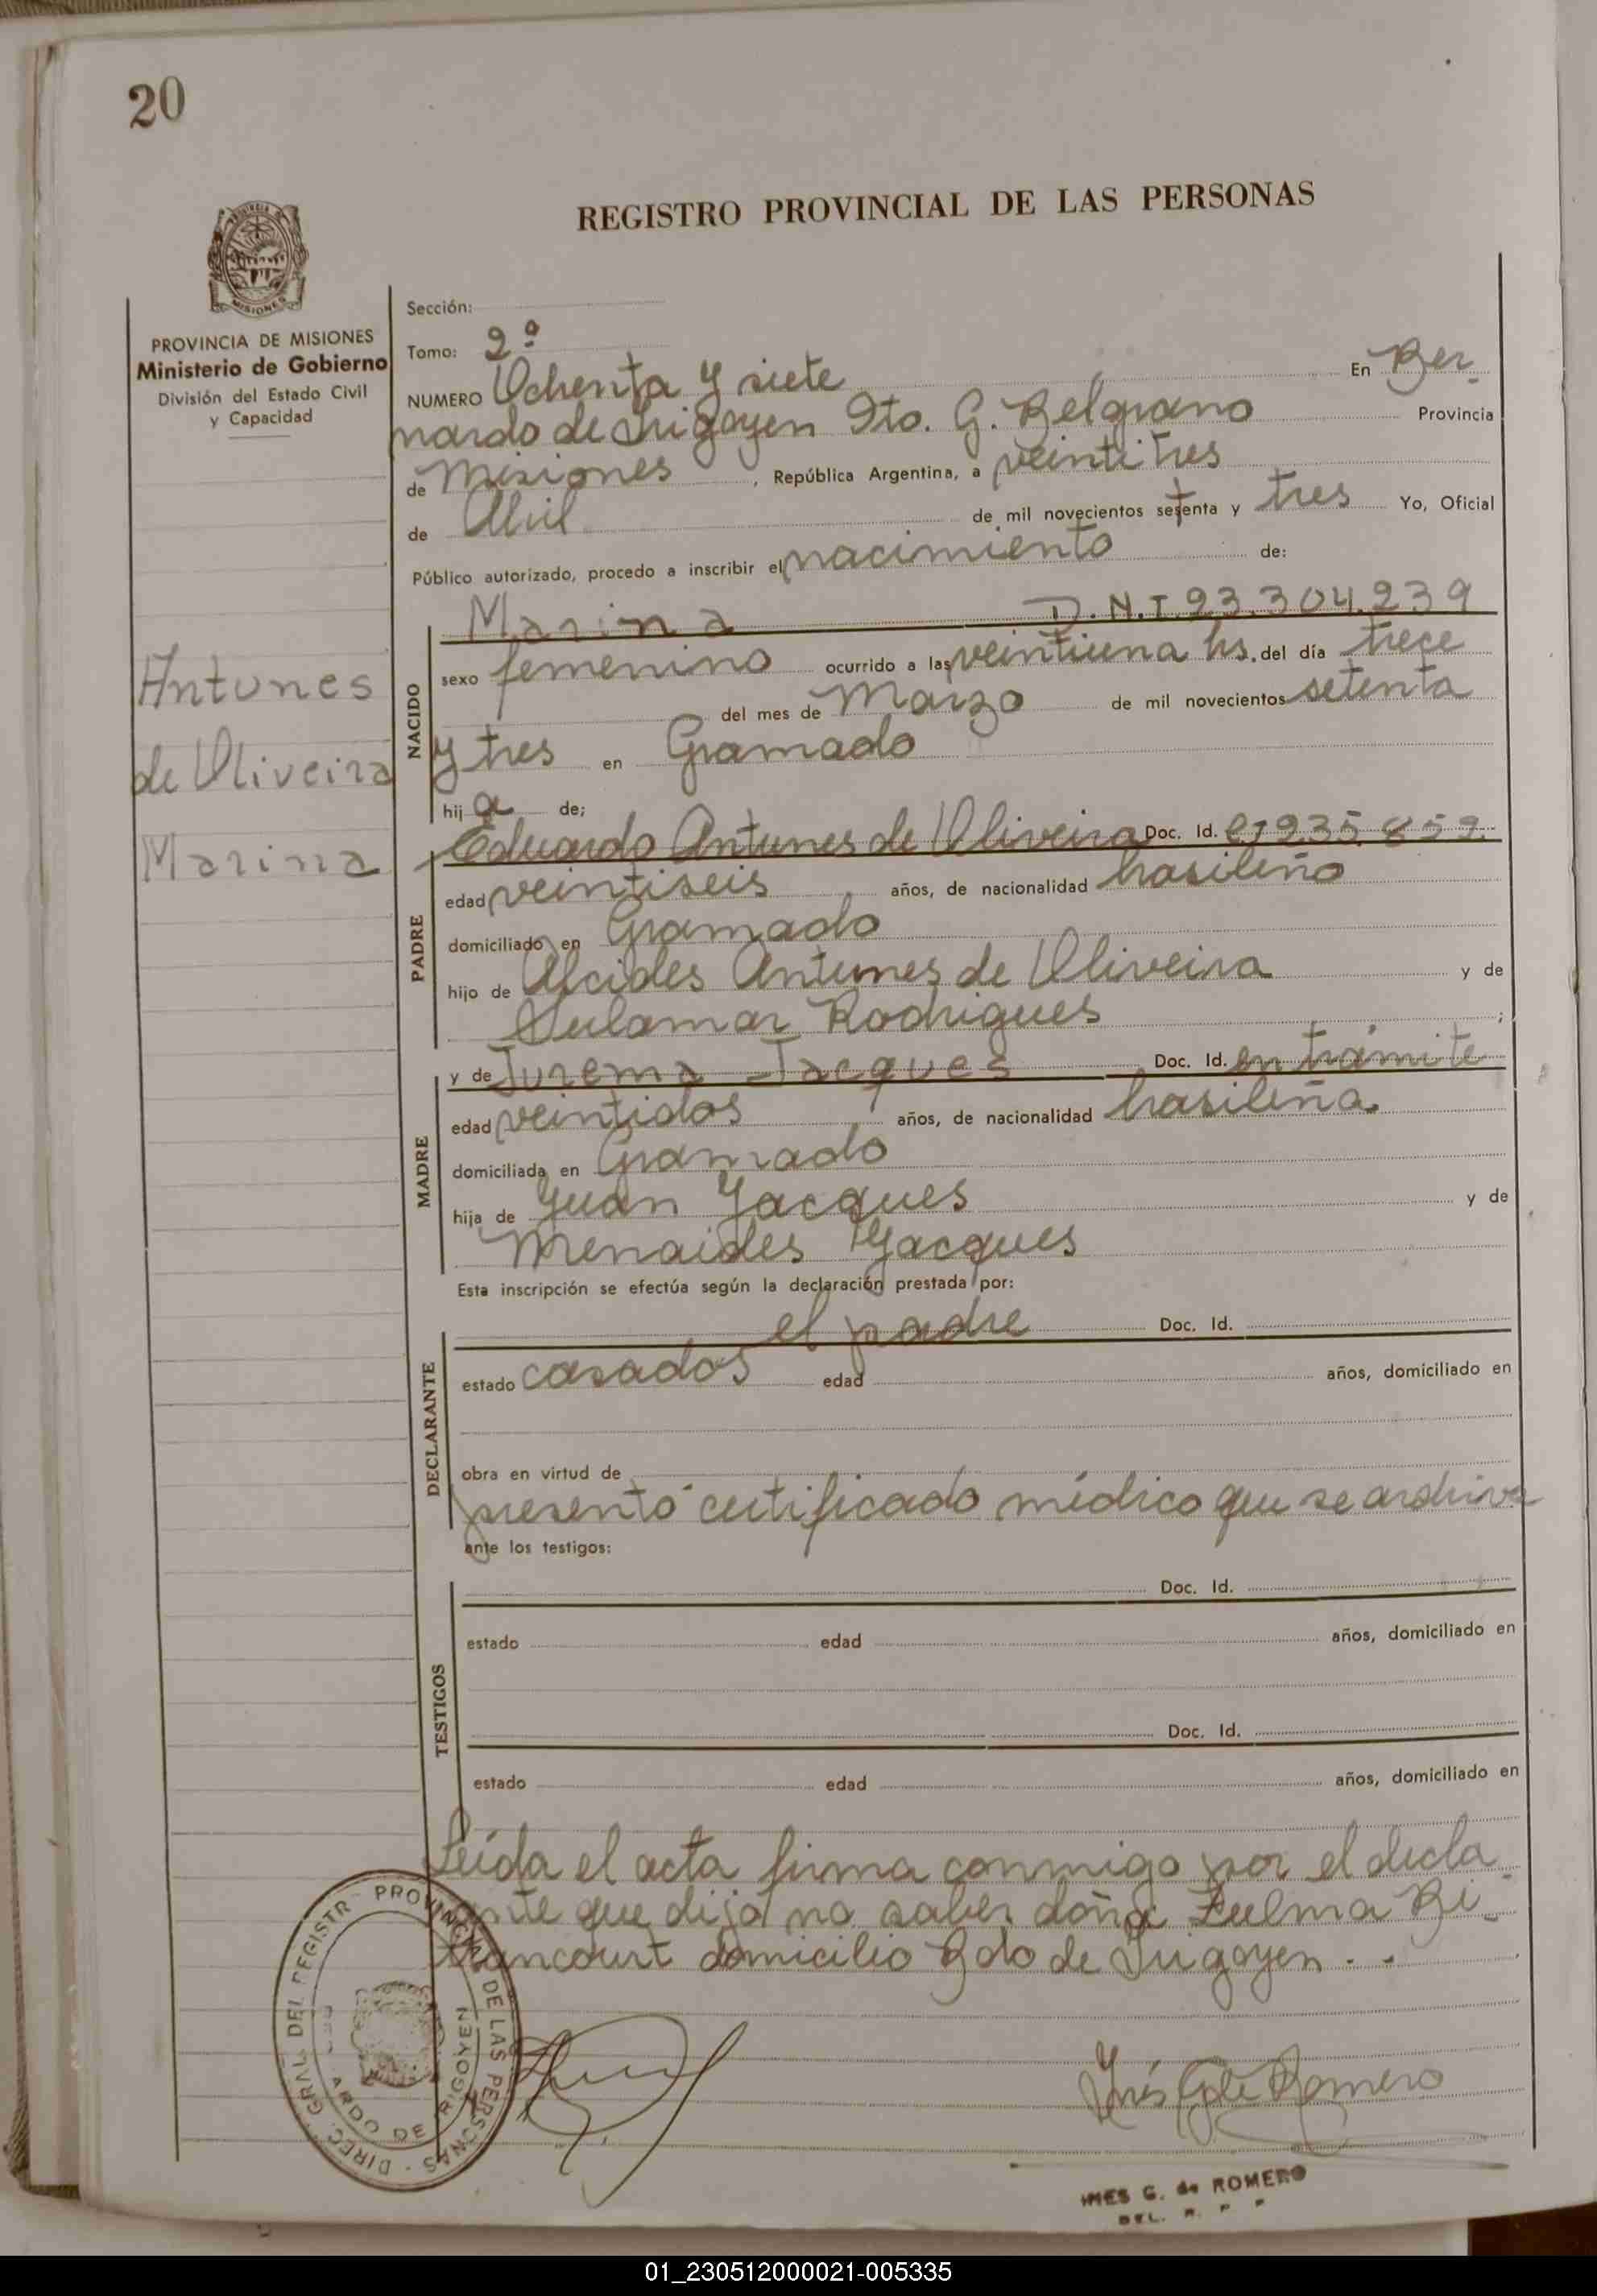 20
REGISTRO PROVINCIAL DE LAS PERSONAS
PROVINCIA DE MISIONES
Ministerio de Gobierno
División del Estado Civil
y Capacidad
Sección:
Tomo: 2º
NUMERO Ochenta y siete En Ber-
nardo de Irigoyen Dto. G. Belgrano Provincia
de Misiones, República Argentina, a veintitres
de Abril de mil novecientos setenta y tres Yo, Oficial
Público autorizado, procedo a inscribir el nacimiento de:
Marina D.N.I 23.304.239
Antunes
de Oliveira
Marina
NACIDO
sexo femenino ocurrido a las veintiuna hs. del día trece
del mes de Marzo de mil novecientos setenta
y tres en Gramado
hija de;
PADRE
Eduardo Antunes de Oliveira Doc. Id. 935.859
edad veintiseis años, de nacionalidad brasileño
domiciliado en Gramado
hijo de Alcides Antunes de Oliveira y de
Sulamar Rodrigues ;
MADRE
y de Jurema Jacques Doc. Id. en trámite
edad veintidos años, de nacionalidad brasileña.
domiciliada en Gramado
hija de Juan Jacques y de
Menaides Jacques
Esta inscripción se efectúa según la declaración prestada por:
DECLARANTE
el padre Doc. Id.
estado casados edad años, domiciliado en
obra en virtud de
presentó certificado médico que se archiva
ante los testigos:
TESTIGOS
Doc. Id.
estado edad años, domiciliado en
Doc. Id.
estado edad años, domiciliado en
Leída el acta firma conmigo por el decla
rante que dijo no saber doña Zulma Bi-
tancourt domicilio Bdo de Irigoyen..
DIREC. GRAL. DEL REGISTR PROVINCIAL DE LAS PERSONAS
ARDO DE IRIGOYEN
Inés G de Romero
INES G. de ROMERO
DEL. R. P. P
01_230512000021-005335